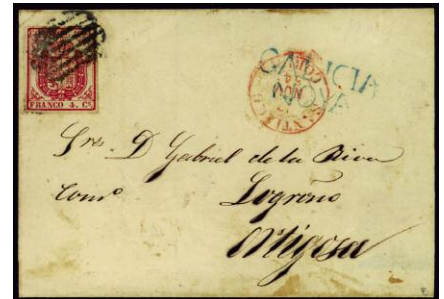 FRANCO 4. Cs.
GALICIA
NOV
Sres. D Gabriel de la Riva
Comº Logroño
Ortigosa